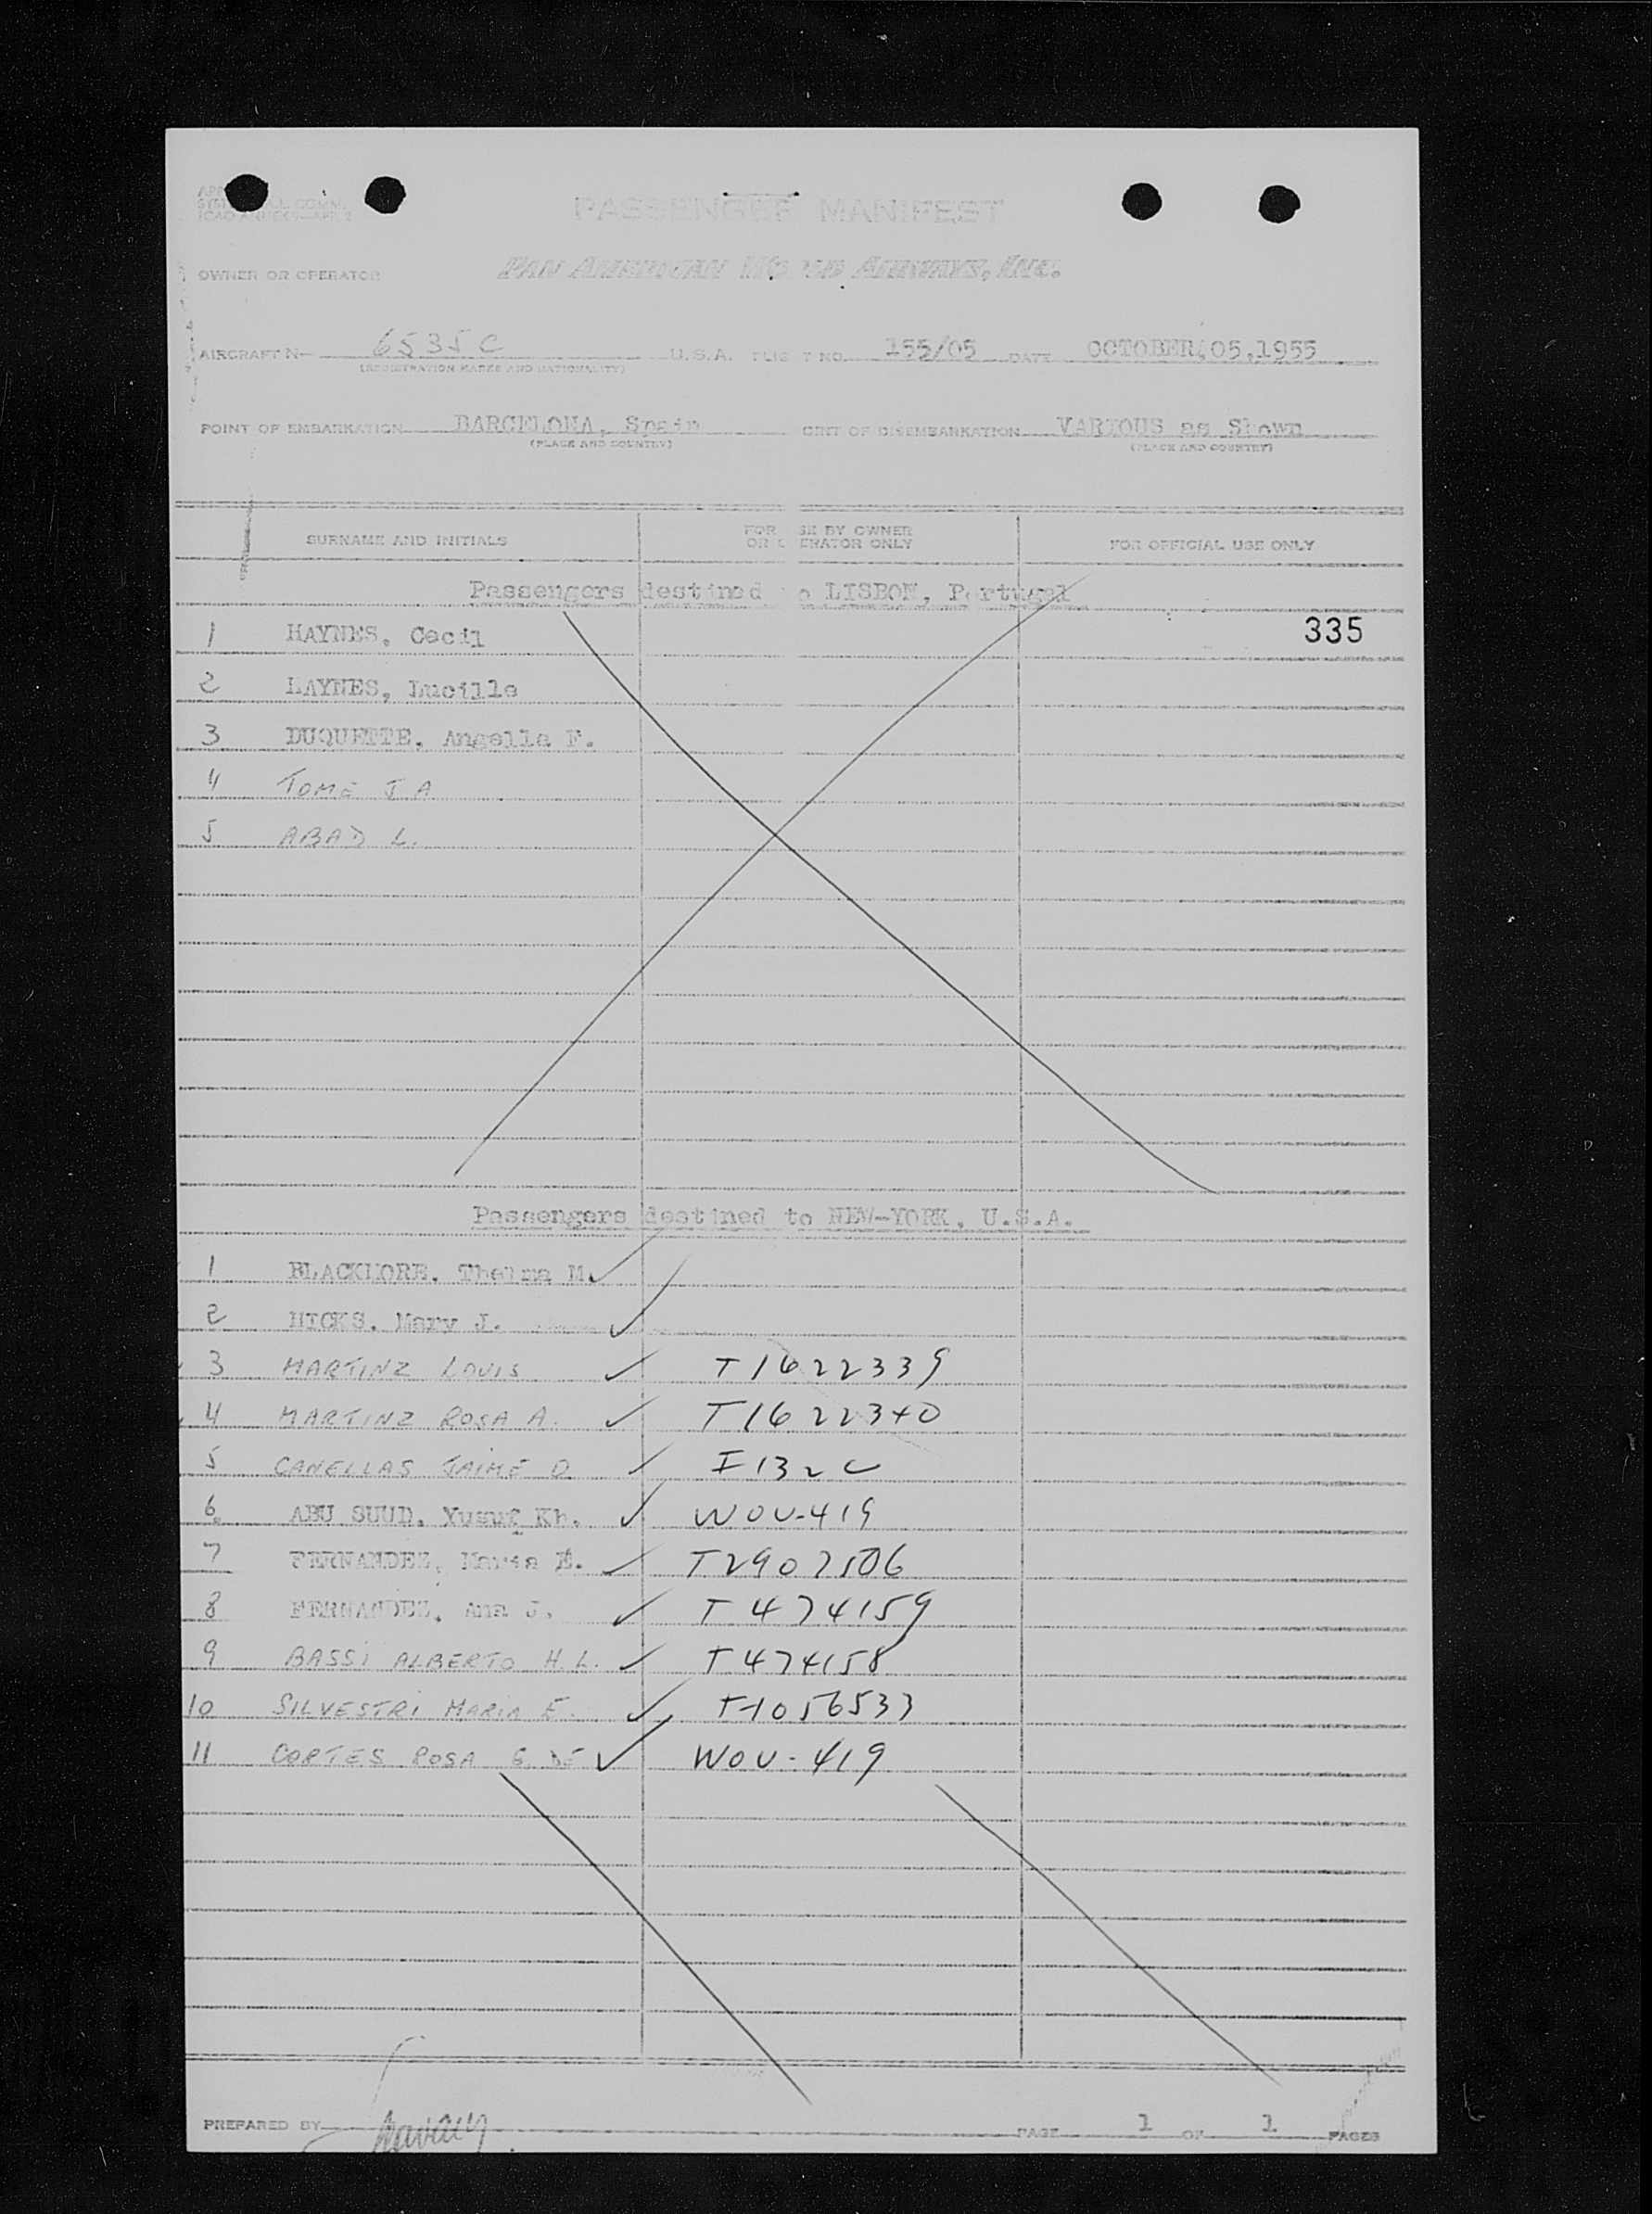 PASSENGER MANIFEST
OWNER OR OPERATOR PAN AMERICAN WORLD AIRWAYS, INC.
AIRCRAFT N- 6535C U.S.A. FLIGHT NO. 155/05 DATE OCTOBER,05,1955
(REGISTRATION MARKS AND NATIONALITY)
POINT OF EMBARKATION BARCELONA, Spain POINT OF DISEMBARKATION VARIOUS as Shown
(PLACE AND COUNTRY) (PLACE AND COUNTRY)
SURNAME AND INITIALS FOR USE BY OWNER OR OPERATOR ONLY FOR OFFICIAL USE ONLY
Passengers destined to LISBON, Portugal
1 HAYNES, Cecil 335
2 LAYNES, Lucille
3 DUQUETTE, Angella F.
4 TOME J A
5 ABAD L.
Passengers destined to NEW-YORK, U.S.A.
1 BLACKMORE, Thelma M. ✓
2 HICKS, Mary J. ✓
3 MARTINZ LOUIS ✓ T1622339
4 MARTINZ ROSA A. ✓ T1622340
5 CANELLAS JAIME D ✓ I132C
6 ABU SUUD, Yusuf Kh. ✓ WOU-419
7 FERNANDEZ, Maria E. ✓ T2907506
8 FERNANDEZ, Ana J. ✓ T474159
9 BASSI ALBERTO H.L. ✓ T474158
10 SILVESTRI MARIA E. ✓ T1056533
11 CORTES ROSA G. DE ✓ WOU-419
PREPARED BY PAGE 1 OF 1 PAGES